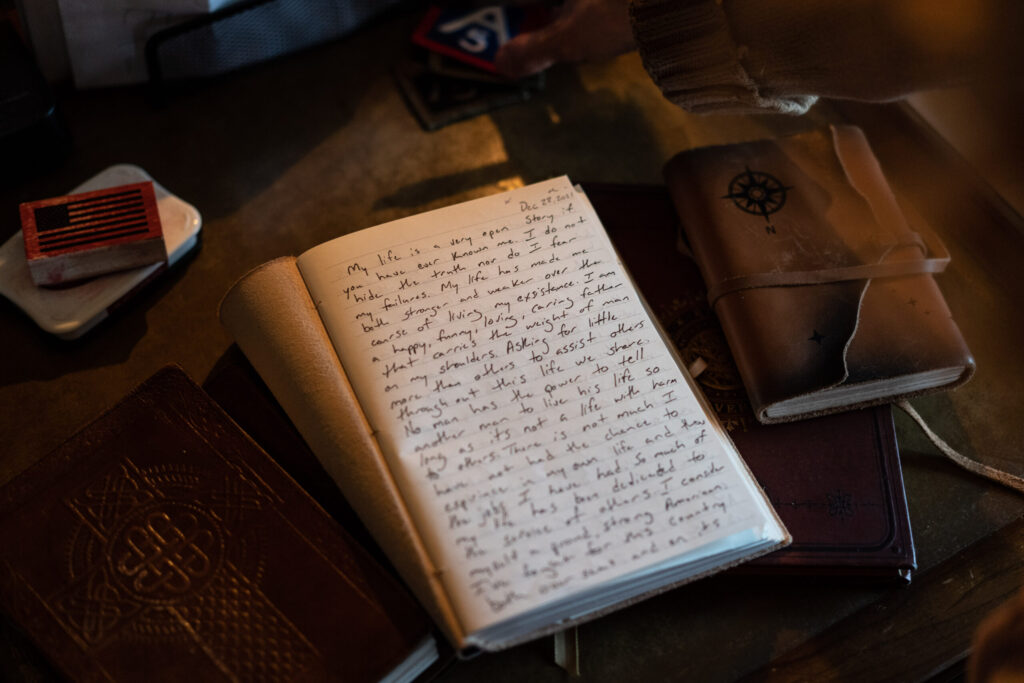 Dec 28, 2021
My life is a very open Story if
you have ever known me. I do not
hide the truth nor do I fear
my failures. My life has made me
both stronger and weaker over the
course of living my exsistance. I am
a happy, funny, loving, caring father
that carries the weight of man
on my shoulders. Asking for little
more than others to assist others
through out this life we share.
No man has the power to tell
another man to live his life so
long as it's not a life with harm
to others. There is not much I
have not had the chance to
expirince in my own life and thru
the jobs I have had. So much of
my life has been dedicated to
the service of others. I consider
myself a proud, strong American.
I've fought for this country
both over seas and on it's
N
A
5